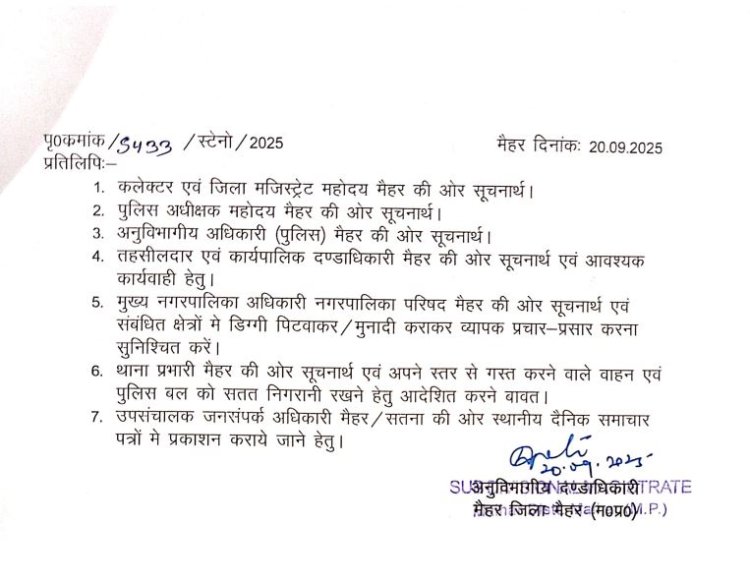 पृ0कमांक /5433 /स्टेनो/2025 मैहर दिनांकः 20.09.2025
प्रतिलिपिः–
1. कलेक्टर एवं जिला मजिस्ट्रेट महोदय मैहर की ओर सूचनार्थ।
2. पुलिस अधीक्षक महोदय मैहर की ओर सूचनार्थ।
3. अनुविभागीय अधिकारी (पुलिस) मैहर की ओर सूचनार्थ।
4. तहसीलदार एवं कार्यपालिक दण्डाधिकारी मैहर की ओर सूचनार्थ एवं आवश्यक
कार्यवाही हेतु।
5. मुख्य नगरपालिका अधिकारी नगरपालिका परिषद मैहर की ओर सूचनार्थ एवं
संबंधित क्षेत्रों मे डिग्गी पिटवाकर/मुनादी कराकर व्यापक प्रचार–प्रसार करना
सुनिश्चित करें।
6. थाना प्रभारी मैहर की ओर सूचनार्थ एवं अपने स्तर से गस्त करने वाले वाहन एवं
पुलिस बल को सतत निगरानी रखने हेतु आदेशित करने बावत।
7. उपसंचालक जनसंपर्क अधिकारी मैहर/सतना की ओर स्थानीय दैनिक समाचार
पत्रों मे प्रकाशन कराये जाने हेतु।
20.09.2025
अनुविभागीय दण्डाधिकारी
मैहर जिला मैहर (म0प्र0)
(M.P.)